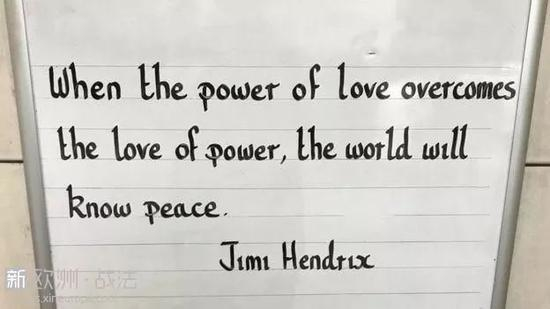 When the power of love overcomes
the love of power, the world will
know peace.
Jimi Hendrix
新欧洲·战法
s.xineurope.com